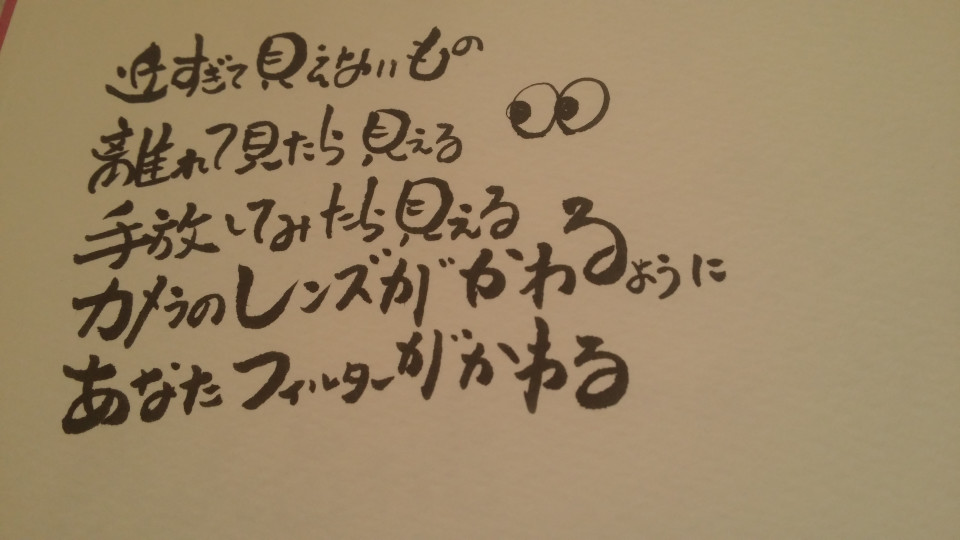 近すぎて見えないもの
離れて見たら見える
手放してみたら見える
カメラのレンズがかわるように
あなたフィルターがかわる